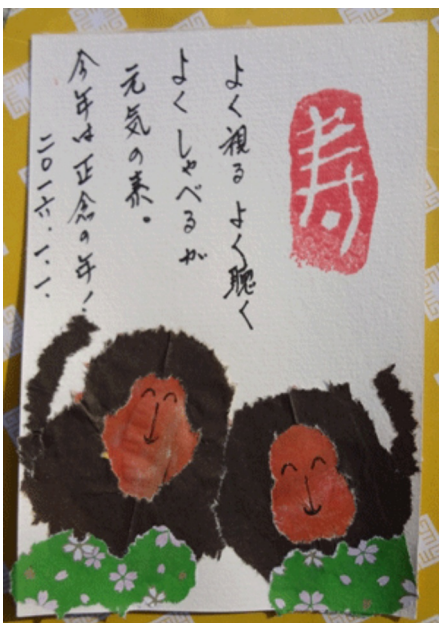 寿
よく視る よく聴く
よくしゃべるが
元気の素。
今年は正念の年！
二〇一六．一．一．